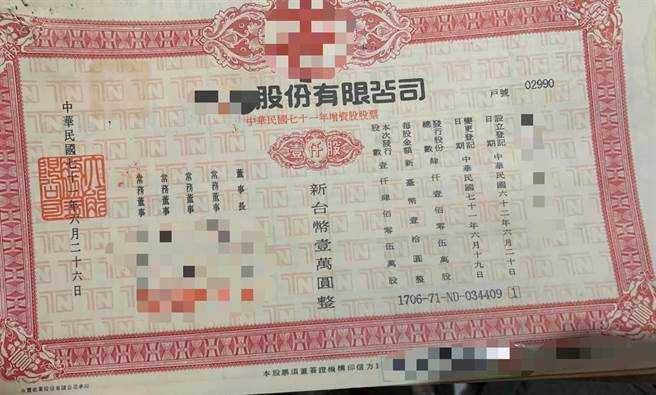 股份有限公司
戶號 02990
中華民國七十一年增資股股票
壹仟股
設立登記日期 中華民國六十二年六月二十日
變更登記日期 中華民國七十一年六月十九日
發行股份總數 肆仟壹佰零伍萬股
每股金額 新臺幣壹拾圓整
本次發行股數 壹仟肆佰零伍萬股
新台幣壹萬圓整
董事長
常務董事
常務董事
常務董事
中華民國七十一年六月二十六日
1706-71-ND-034409 1
本股票須蓋簽證機構印信方